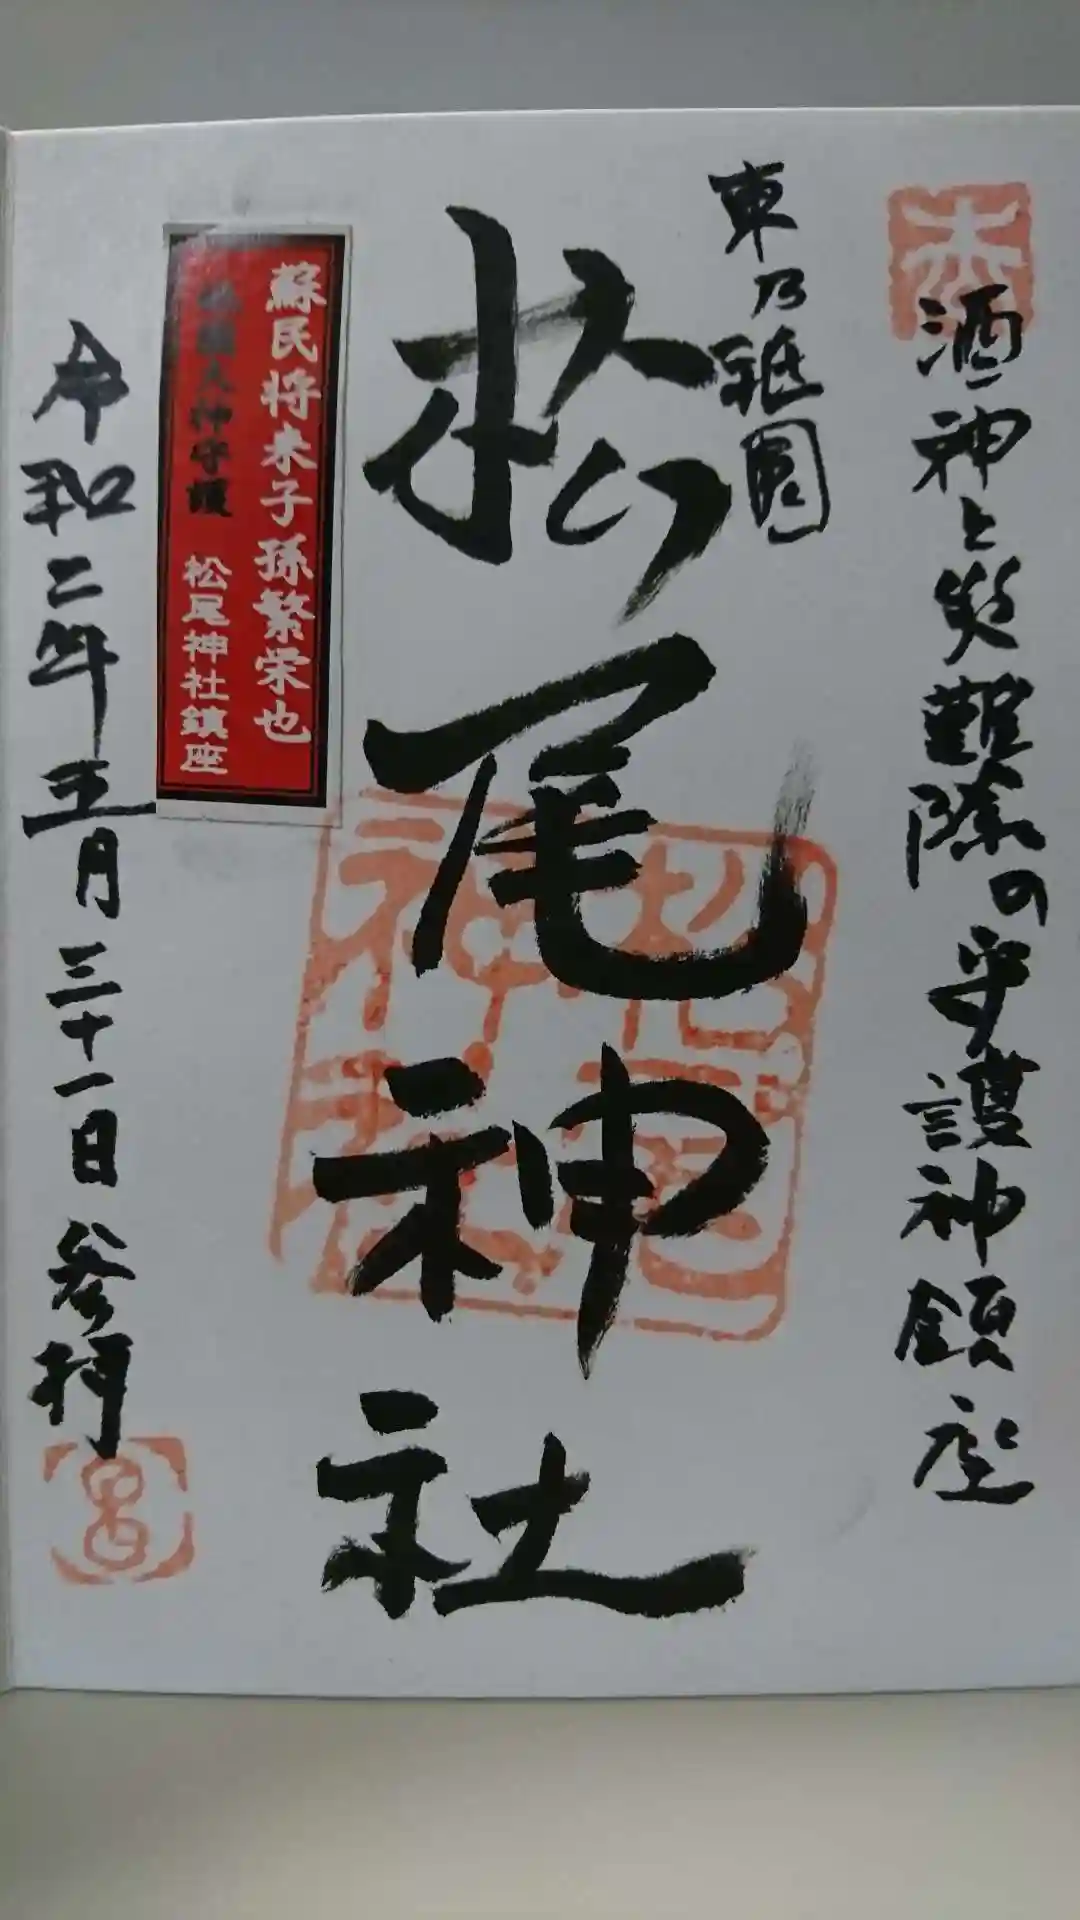 酒神と災難除の守護神鎮座
東乃祗園
松尾神社
蘇民将来子孫繁栄也
大神守護 松尾神社鎮座
令和二年五月三十一日 参拝